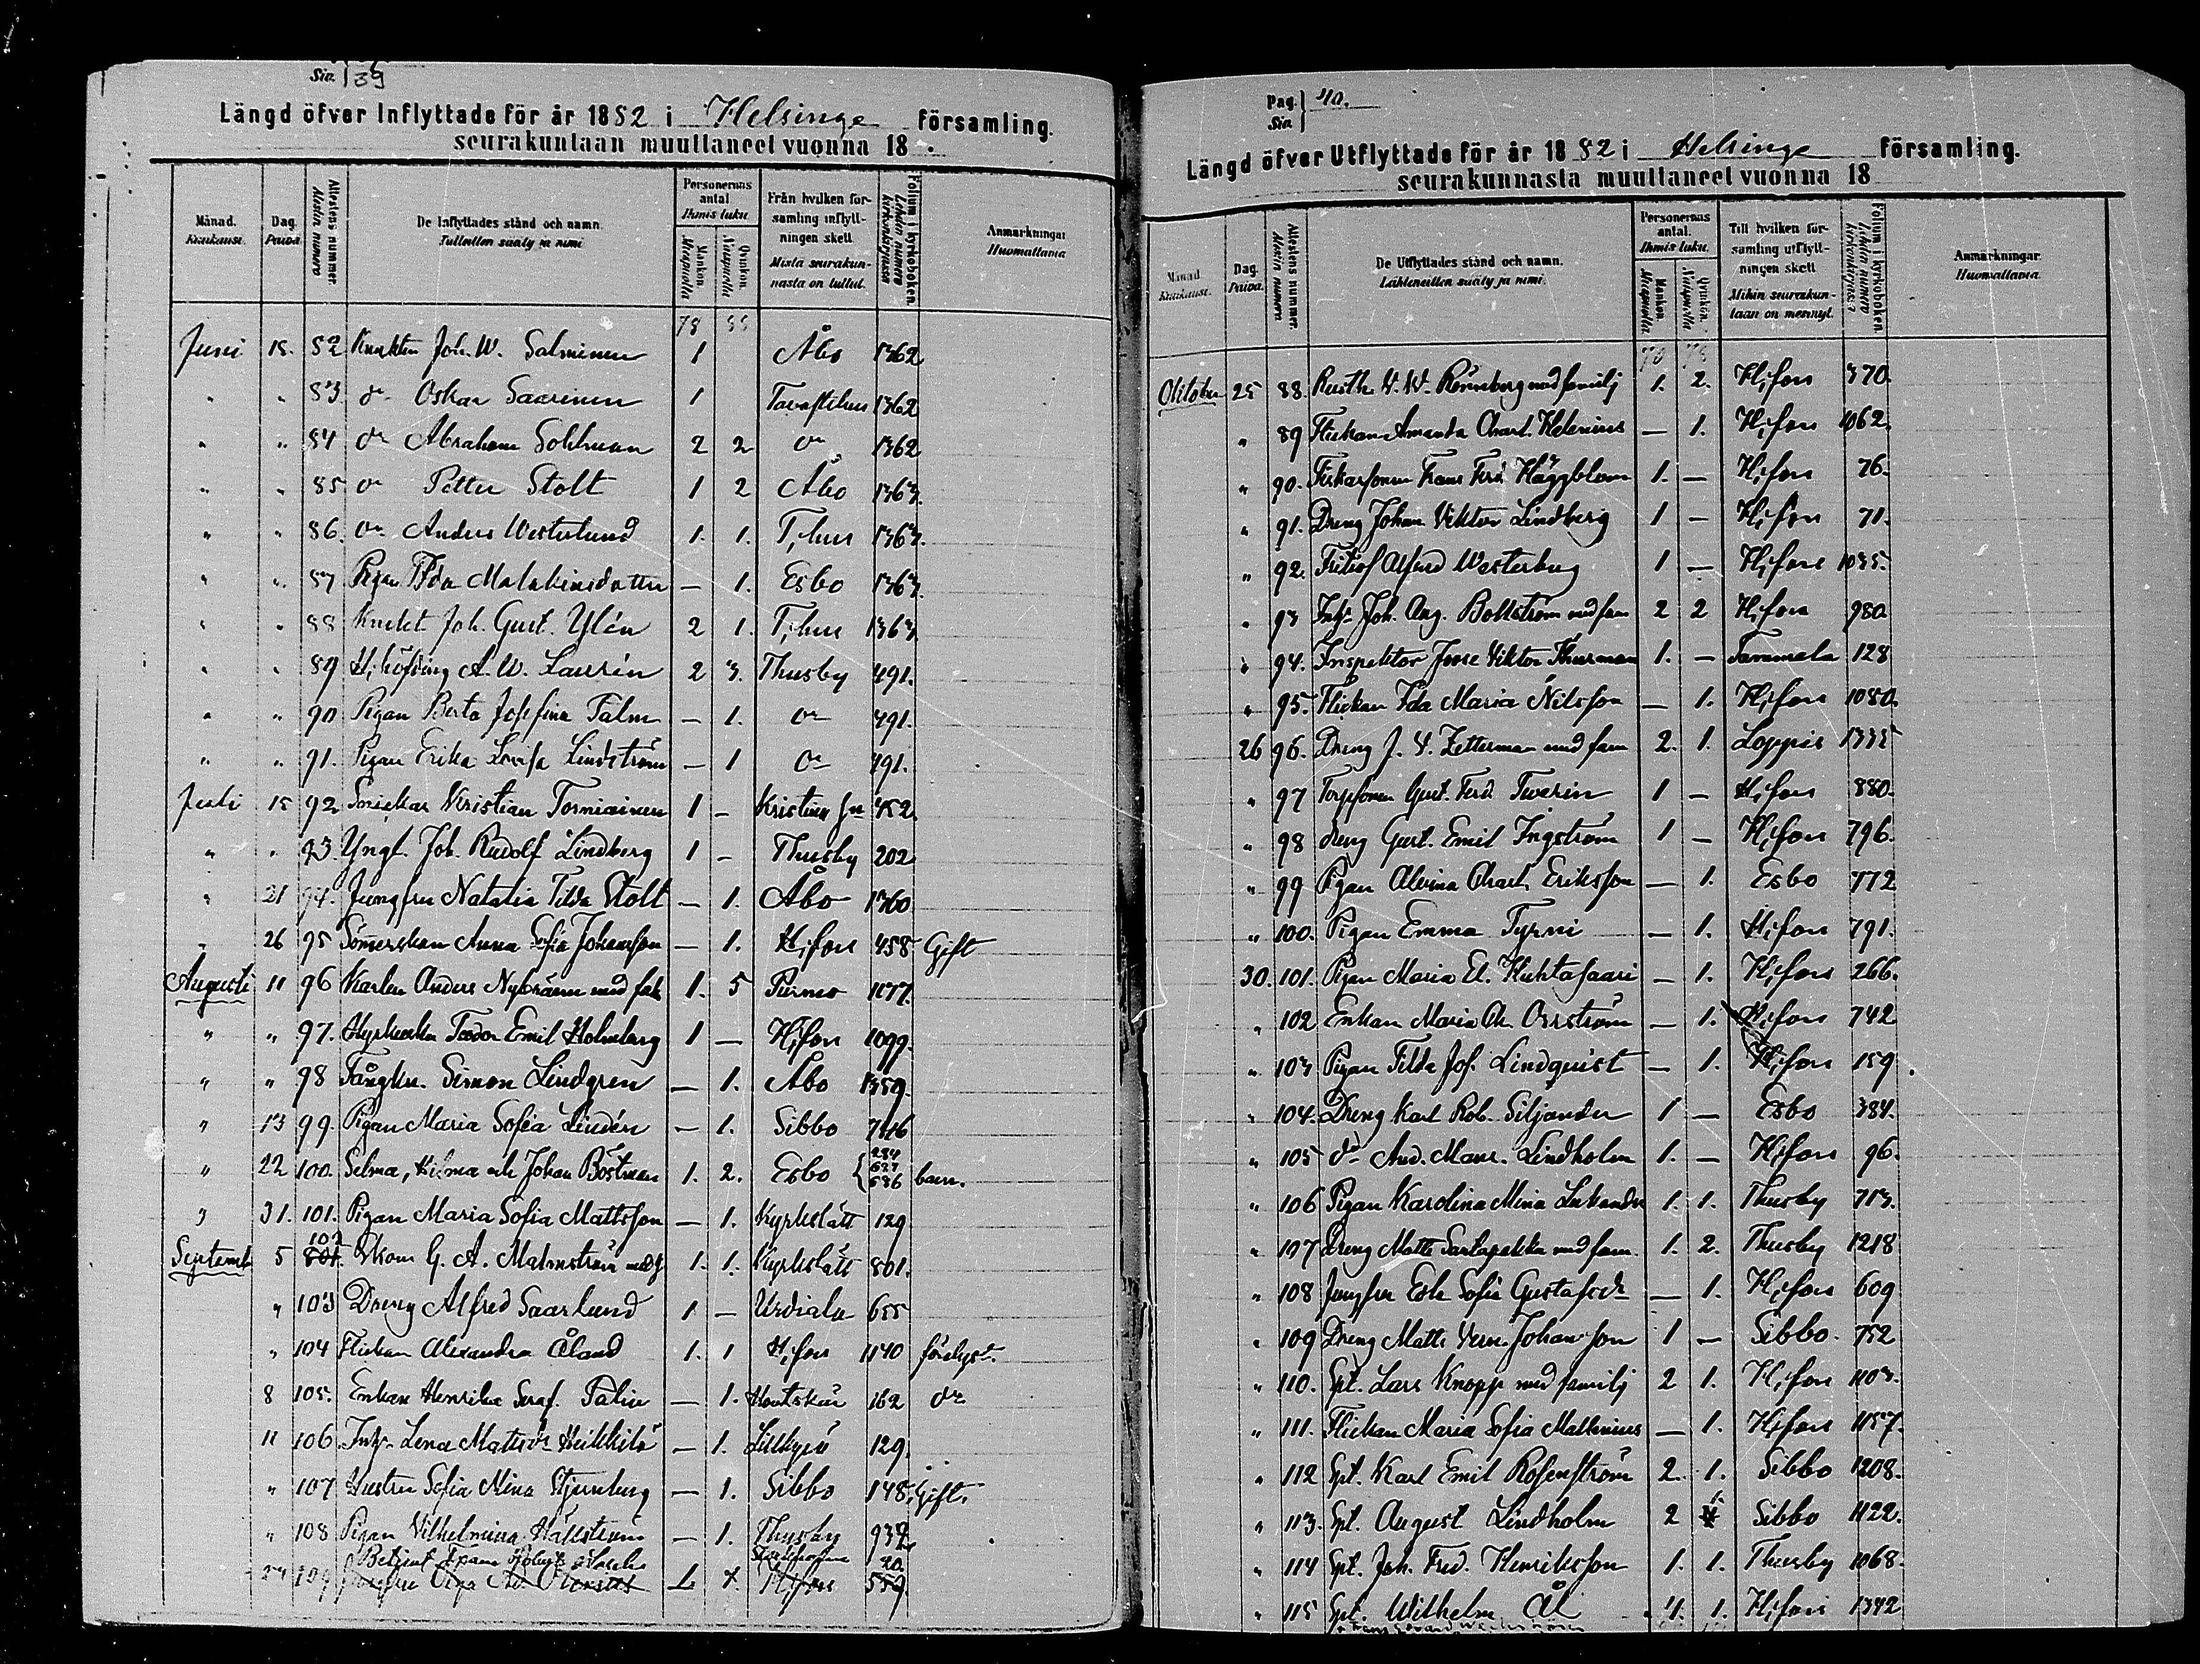 Sio. 39
Längd öfver Inflyttade för år 1882 i Helsinge församling.
seurakuntaan muuttaneet vuonna 18 .
Månad. Kuukausi.
Dag. Päivä.
Attestens nummer. Mistin numero
De Inflyttades stånd och namn. Tulleitten sääty ja nimi
Personernas antal. Ihmis luku.
Mankön. Miespuolia
Qvinkön. Naispuolia
Från hvilken församling inflyttningen skett. Mistä seurakunnasta on tullut.
Folium i kyrkoboken. Lehden numero kirkonkirjassa
Anmärkningar Huomattavia
78 88
Juni 15. 82 Knekten Joh. W. Salminen 1 Åbo 1362
" " 83 do Oskar Saarinen 1 Tavastehus 1362
" " 84 do Abraham Sohlman 2 2 do 1362
" " 85 do Petter Stolt 1 2 Åbo 1363
" " 86. do Anders Westerlund 1. 1. T,hus 1363.
" " 87 Pigan Ida Malakiasdotter — 1. Esbo 1363.
" " 88 Knekt Joh. Gust. Ylén 2 1. T,hus 1363
" " 89 H,höfding A. W. Laurén 2 3. Thusby 491.
" " 90 Pigan Berta Josefina Talm — 1. do 491.
" " 91. Pigan Erika Lovisa Lindström — 1 do 491.
Juli 15 92 Snickar Kristian Torniainen 1 — Kristina 452
" " 93. Yngl. Joh. Rudolf Lindberg 1 — Thusby 202
" 21 94. Jungfru Natalia Tilda Stolt — 1. Åbo 1360
" 26 95 Sömerskan Anna Sofia Johansson — 1. H,fors 458 Gift
Augusti 11 96 Karlen Anders Nybränn med fam 1. 5 Purmo 1177.
" " 97. Theodor Emil Holmberg 1 — H,fors 1099.
" " 98 Fångkn. Simon Lindgren — 1. Åbo 1359.
" 13 99. Pigan Maria Sofia Lindén — 1. Sibbo
" 22 100. Selma, Hilma och Johan Böstman 1. 2. Esbo { 284 637 636 barn.
" 31. 101. Pigan Maria Sofia Mattsson — 1. Kyrkslätt 129
Septemb 5 102 G. A. Malmström med f 1. 1. Kyrkslätt 801.
" 103 Dreng Alfred Saarlund 1 — Urdiala 655
" 104 Flickan Alexandra Åland 1. 1 H,fors 1140
8 105. Enkan Henrika Seraf. Talin — 1. Houtskär 162 do
11 106 Inh. Lena Mattsdr Heikkilä — 1. Lillkyrö 129.
" 107 Hustru Sofia Mina Stjernberg — 1. Sibbo 148. Gift.
" 108 Pigan Vilhelmina Hällström — 1. Thusby 932
27 109 20.
Pag. Sio. } 40.
Längd öfver Utflyttade för år 1882 i Helsinge församling.
seurakunnasta muuttaneet vuonna 18
Månad. Kuukausi.
Dag. Päivä.
Attestens nummer. Mistin numero
De Utflyttades stånd och namn. Lähteneitten sääty ja nimi.
Personernas antal. Ihmis luku.
Mankön. Miespuolia.
Qvinkön. Naispuolia
Till hvilken församling utflyttningen skett Mihin seurakuntaan on mennyt.
Folium i kyrkoboken. Lehden numero kirkonkirjassa
Anmärkningar. Huomattavia.
70 78
Oktober 25 88. Rusth. V. W. Rönnberg med familj 1. 2. H,fors 370
" 89 Flickan Amanda Charl. Helenius — 1. H,fors 1062.
" 90. Fiskarsonen Frans Ferd. Häggblom 1. — H,fors 76.
" 91. Dreng Johan Viktor Lindberg 1 — H,fors 71.
" 92. Fritiof Alfred Westerberg 1 — H,fors 1035.
" 93 Inh. Joh. Aug. Bollström med fam 2 2 H,fors 980
" 94. Inspektor Jose Viktor Thurman 1. — Tammela 128
" 95. Flickan Ida Maria Nilsson — 1. H,fors 1080.
26 96. Dreng J. V. Zetterman med fam 2. 1. Loppis 1335
" 97 Torpsonen Gust. Ferd. Tverin 1 — H,fors 880.
" 98 dreng Gust. Emil Ingström 1 — H,fors 796.
" 99 Pigan Alvina Charl. Eriksson — 1. Esbo 772
" 100. Pigan Emma Tyrni — 1. H,fors 791.
30. 101. Pigan Maria El. Huhtasaari — 1. H,fors 266.
" 102 Enkan Maria Ch. Orrström — 1. H,fors 742
" 103 Pigan Tilda Jos. Lindquist — 1. H,fors 159.
" 104. Dreng Karl Rob. Siljander 1 — Esbo 384.
" 105 do And. Maur. Lindholm 1. — H,fors 96.
" 106 Pigan Karolina Mina Lukander 1. 1. Thusby 713.
" 107 Dreng Matts med fam. 1. 2. Thusby 1218
" 108 Jungfru Eva Sofia Gustafsdr — 1. H,fors 609
" 109 Dreng Matts Vern. Johansson 1 — Sibbo. 752
" 110. Spt. Lars Knopp med familj 2 1. H,fors 1103.
" 111. Flickan Maria Sofia Mallenius — 1. H,fors 1157.
" 112 Spt. Karl Emil Rosenström 2. 1. Sibbo 1208.
" 113. Spt. August Lindholm 2 Sibbo 1122.
" 114 Spt. Joh. Fred. Henriksson 1. 1. Thusby 1068.
" 115 Spt. Wilhelm Ål 4. 1. H,fors 1342